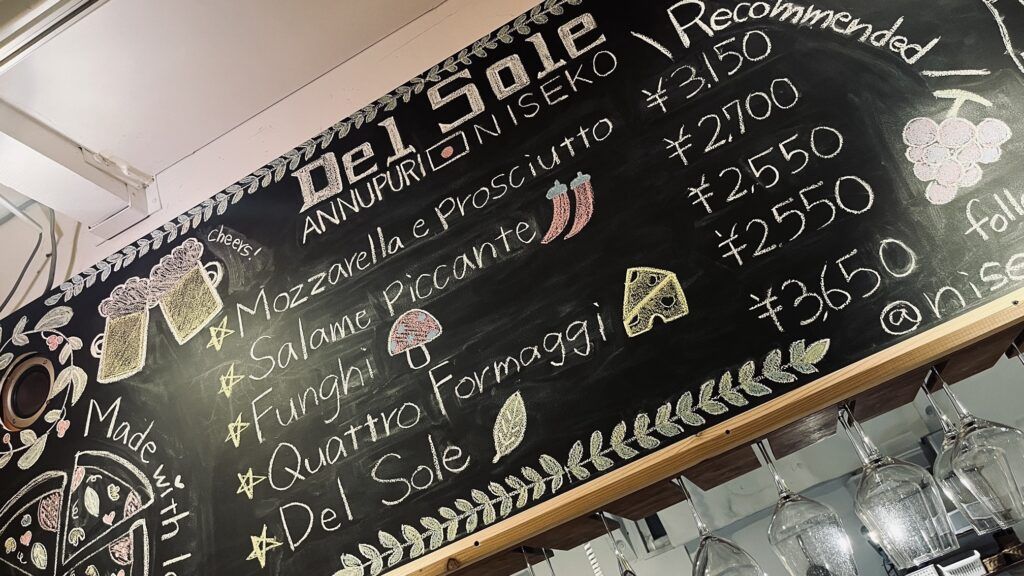 Del Sole
ANNUPURI NISEKO
cheers!
Mozzarella e prosciutto ¥3,150
Salame piccante ¥2,700
Funghi ¥2,550
Quattro Formaggi ¥2,550
Del Sole ¥3,650
Made with
Recommended